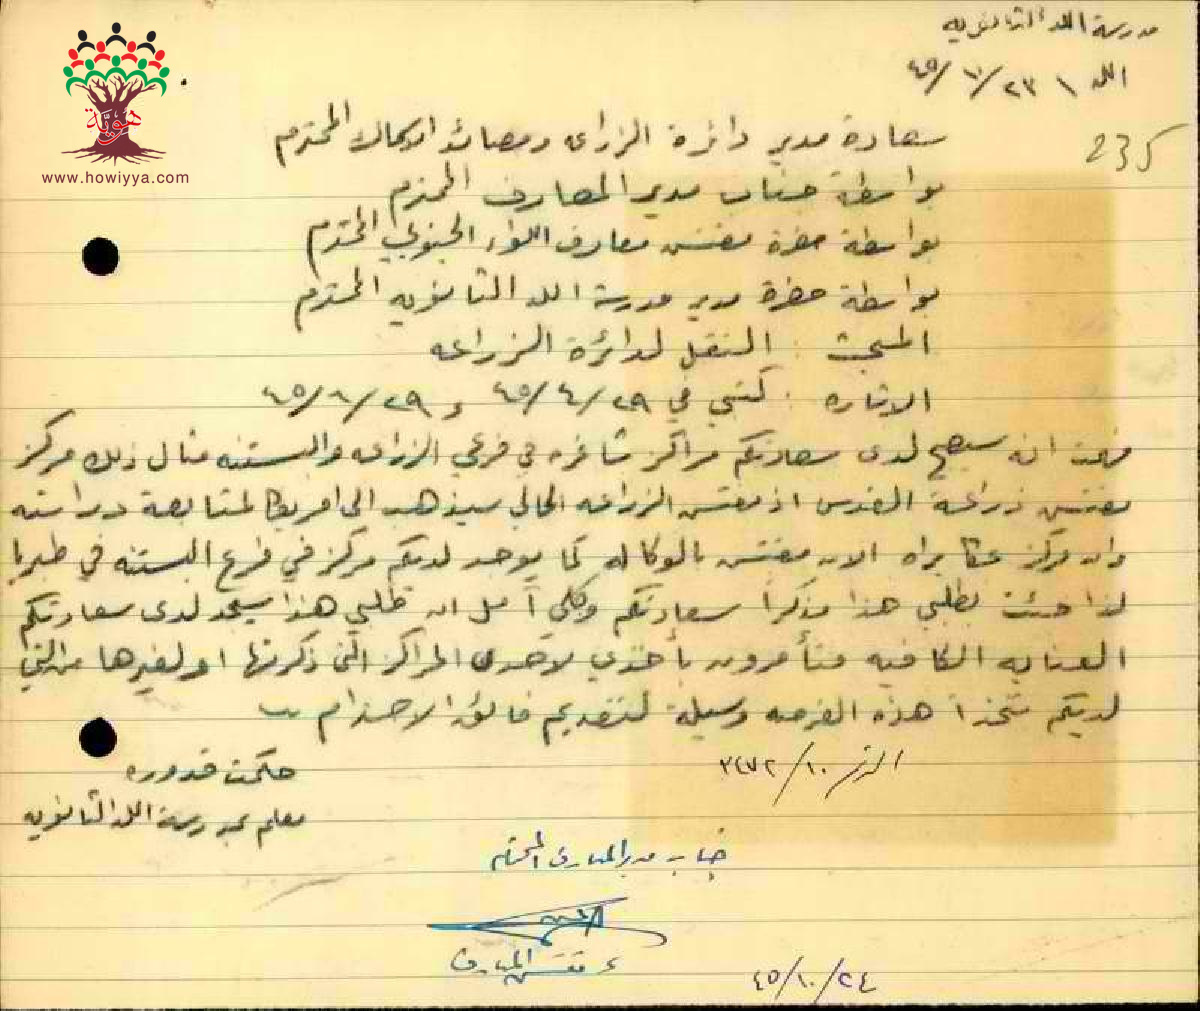 مدرسة اللد الثانويه
اللد \ ٢٣/١٠/٤٥
235
هوية
www.howiyya.com
سعادة مدير دائرة الزراعه ومصائد الاسماك المحترم
بواسطة جناب مدير المعارف المحترم
بواسطة حضرة مفتش معارف اللواء الجنوبي المحترم
بواسطة حضرة مدير مدرسة اللد الثانويه المحترم
المبحث : النقل لدائرة الزراعه
الاشاره : كتبي في ٢٩/٤/٤٥ و ٢٩/٨/٤٥
فهمت انه سيصبح لدى سعادتكم مراكز شاغره في فرعي الزراعه والبستنه مثال ذلك مركز
مفتش زراعة القدس اذ مفتش الزراعه الحالي سيذهب الى امريكا لمتابعة دراسته
وان مركز عكا يراه الان مفتش بالوكاله كما يوجد لديكم مركز في فرع البستنه في طبريا
لذا جئت بطلبي هذا مذكرا سعادتكم وكلي آمل ان طلبي هذا سيجد لدى سعادتكم
العنايه الكافيه فتأمرون بأخذي لاحدى المراكز التي ذكرتها او لغيرها من التي
لديكم متخذا هذه الفرصه وسيلة لتقديم فائق الاحترام
حكمت قدوره
معلم بمدرسة اللد الثانويه
جناب مدير المعارف المحترم
مفتش المعارف
٢٤/١٠/٤٥